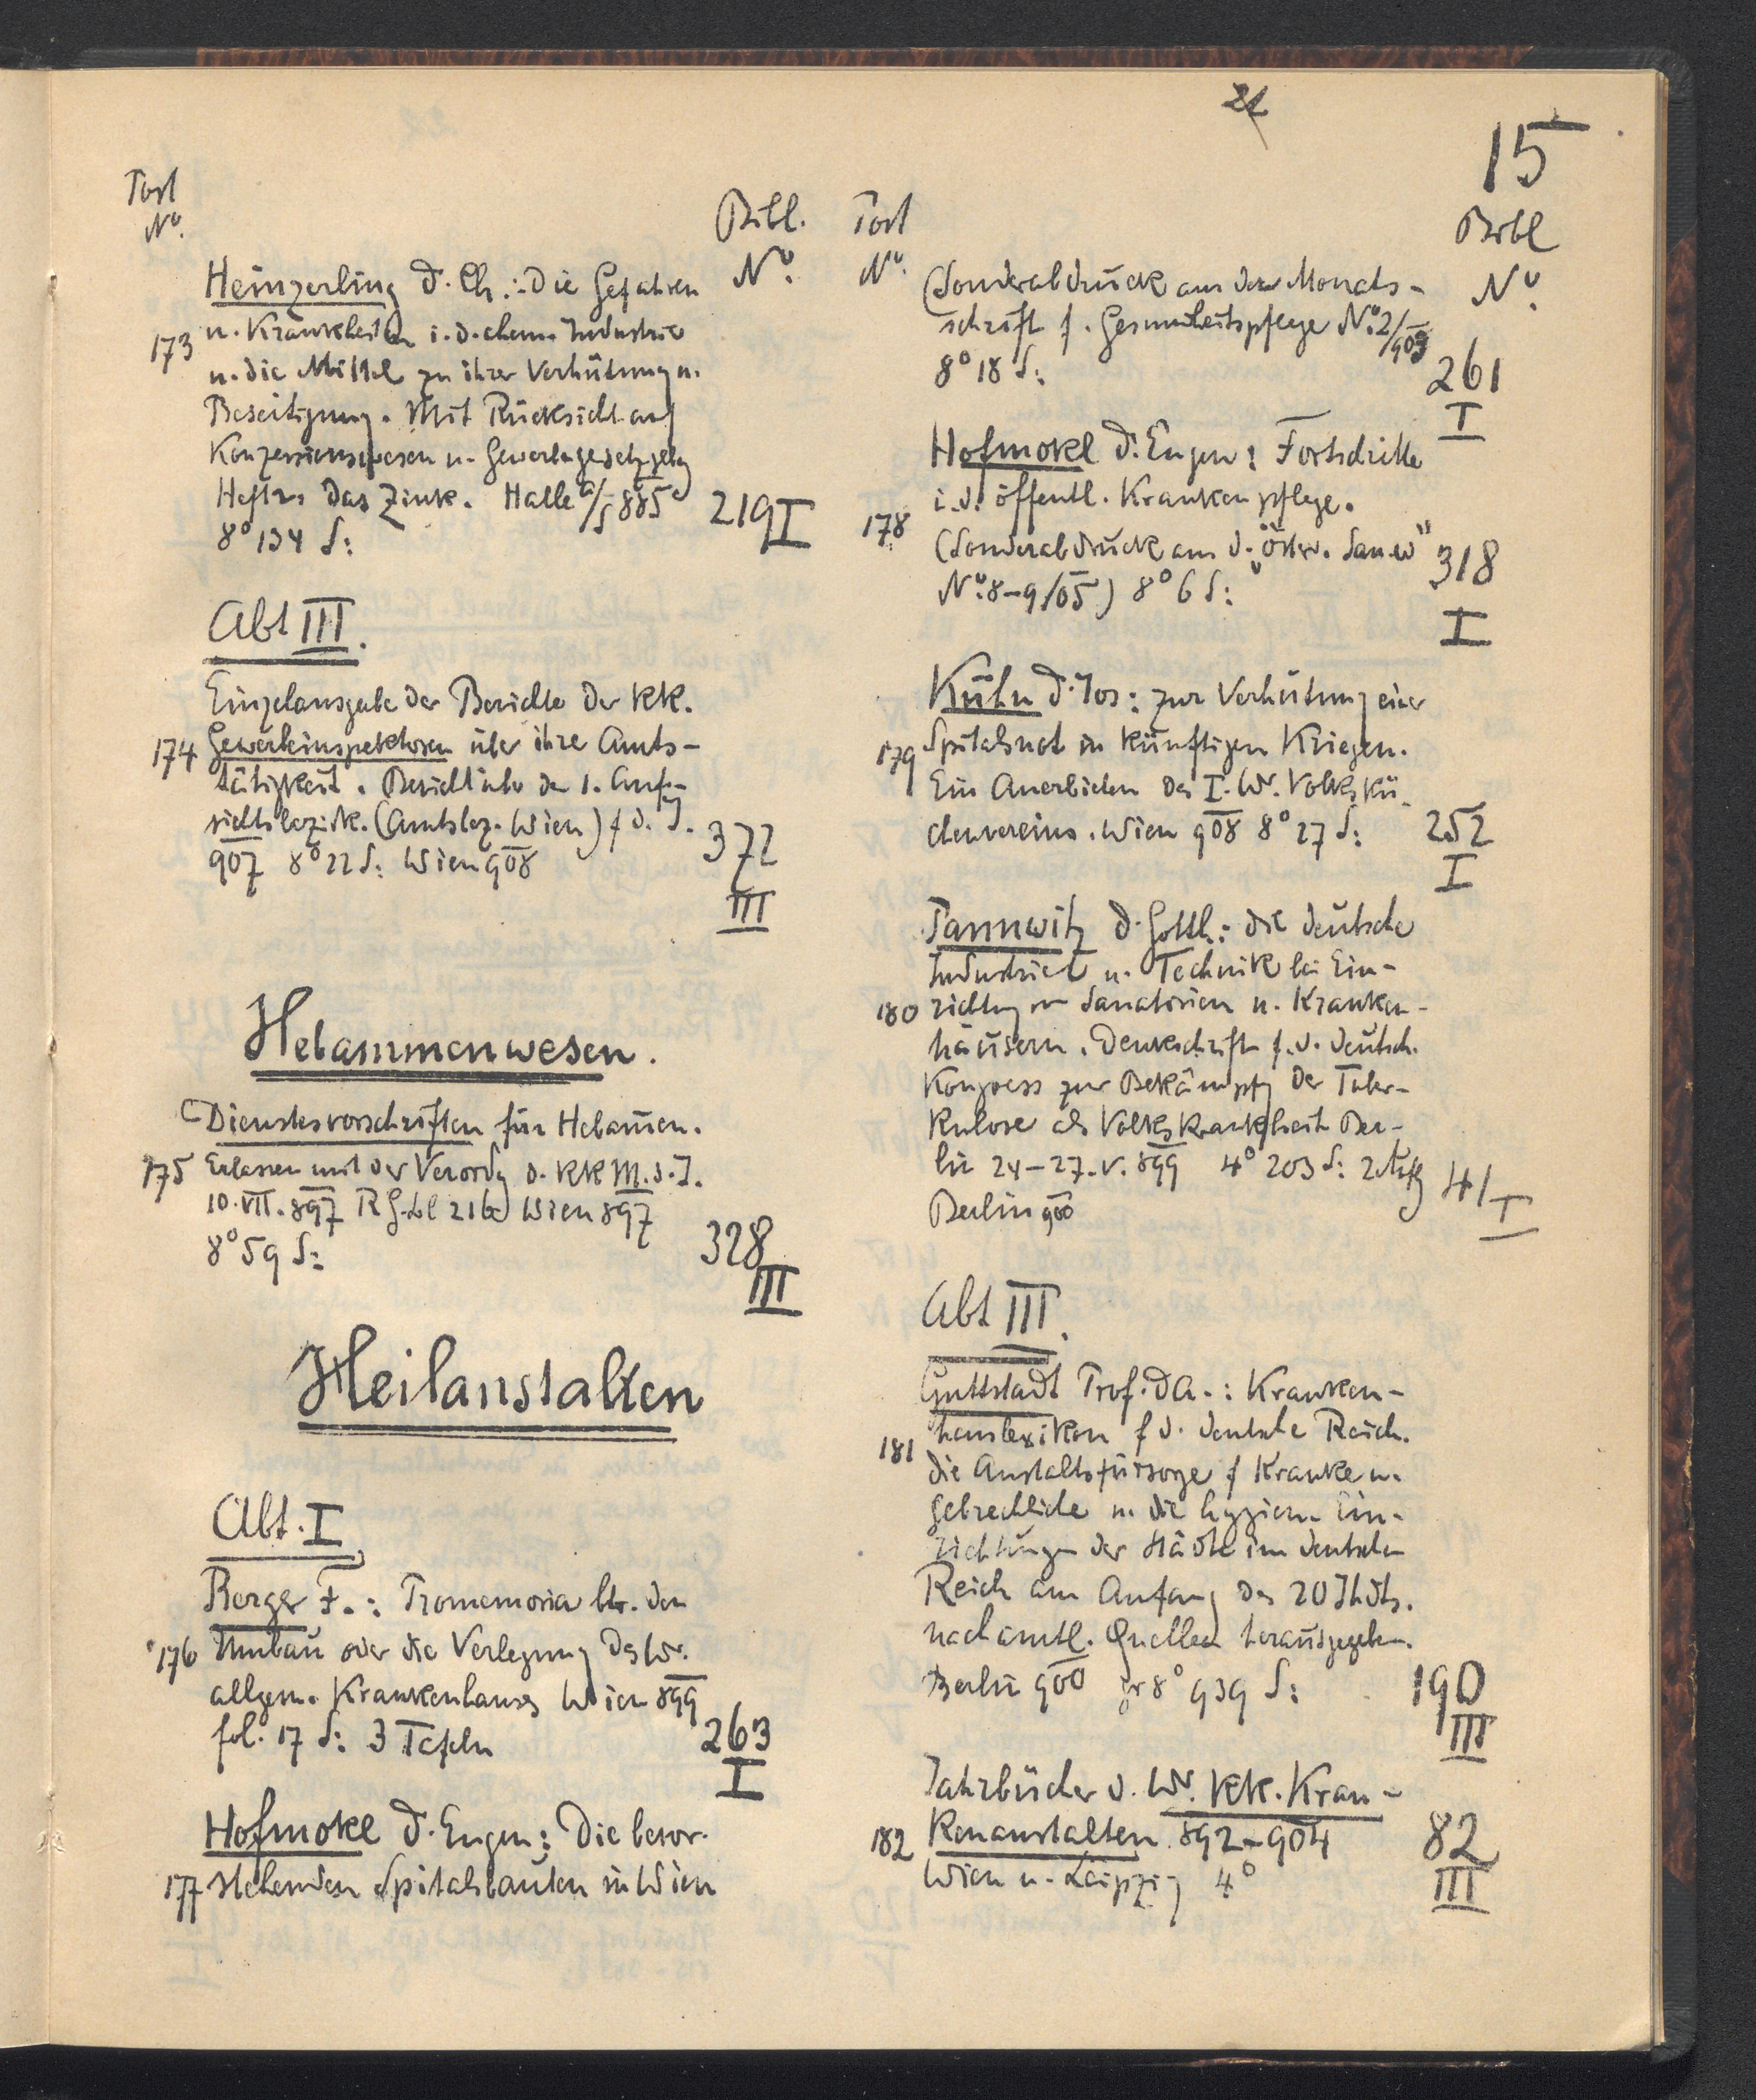 21
15
Post
No.
Bibl.
No.
Heinzerling D. Ch.: Die Gefahren
173 u. Krankheiten i. d. chem. Industrie
u. die Mittel zu ihrer Verhütung u.
Beseitigung. Mit Rücksicht auf
Konzessionswesen u. Gewerbegesetzgebg
Heft 2. Das Zink. Halle a/S 885
8° 134 S:
219 I
Abt III.
Einzelausgabe der Berichte der KK.
174 Gewerbeinspektoren über ihre Amts-
tätigkeit. Bericht über den 1. Auf-
sichtsbezirk. (Amtsbez. Wien) f. d. J.
907 8° 22 S: Wien 908
372
III
Hebammenwesen.
Dienstesvorschriften für Hebam̄en.
175 Erlassen mit der Verordg d. KK M. d. I.
10. VII. 897 RG.bl 216 Wien 897
8° 59 S:
328
III
Heilanstalten
Abt. I
Berger F.: Promemoria btr. den
176 Umbau oder die Verlegung des Wr.
allgem. Krankenhauses Wien 899
fol. 17 S: 3 Tafeln
263
I
Hofmokl D. Eugen: Die bevor-
177 stehenden Spitalsbauten in Wien
Post
No.
Bibl
No.
(Sonderabdruck aus der Monats-
schrift f. Gesundheitspflege No. 2/903
8° 18 S:
261
I
Hofmokl D. Eugen: Fortschritte
i. d. öffentl. Krankenpflege.
178
(Sonderabdruck aus d. „Österr. San.w"
No. 8-9/05) 8° 6 S:
318
I
Kühn D. Jos: zur Verhütung einer
179 Spitalsnot in künftigen Kriegen.
Ein Anerbieten des I. Wr. Volkskü-
chenvereins. Wien 908 8° 27 S:
252
I
Pannwitz D. Gotth.: die deutsche
Industrie u. Technik bei Ein-
180 richtung von Sanatorien u. Kranken-
häusern. Denkschrift f. d. deutsch.
Kongress zur Bekämpfg der Tuber-
kulose als Volkskrankheit Ber-
lin 24-27. V. 899 4° 203 S:
Berlin 900
41
I
Abt III.
Guttstadt Prof. D A.: Kranken-
181 hauslexikon f d. deutsche Reich.
die Anstaltsfürsorge f Kranke u.
Gebrechliche u. die hygien. Ein-
richtungen der Städte im deutschen
Reich am Anfang des 20 Jhdts.
nach amtl. Quellen herausgegeben.
Berlin 900 gr 8° 939 S:
190
III
Jahrbücher d. Wr. KK. Kran-
182 Kenanstalten 892-904
Wien u. Leipzig 4°
82
III